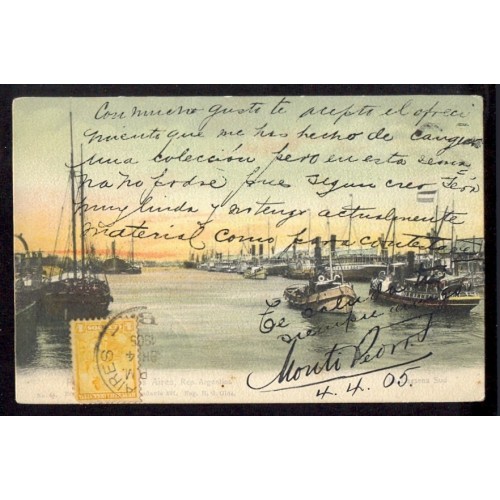 Con mucho gusto te acepto el ofreci
miento que me has hecho de cangear
una colección pero en esta sema
na no podré pues segun creo
muy linda y no tengo actualmente
material como para contestar
Te saluda
siempre
Monti Pedro
4.4.05.
Aires, Rep. Argentina
Sud
AIRES
1905